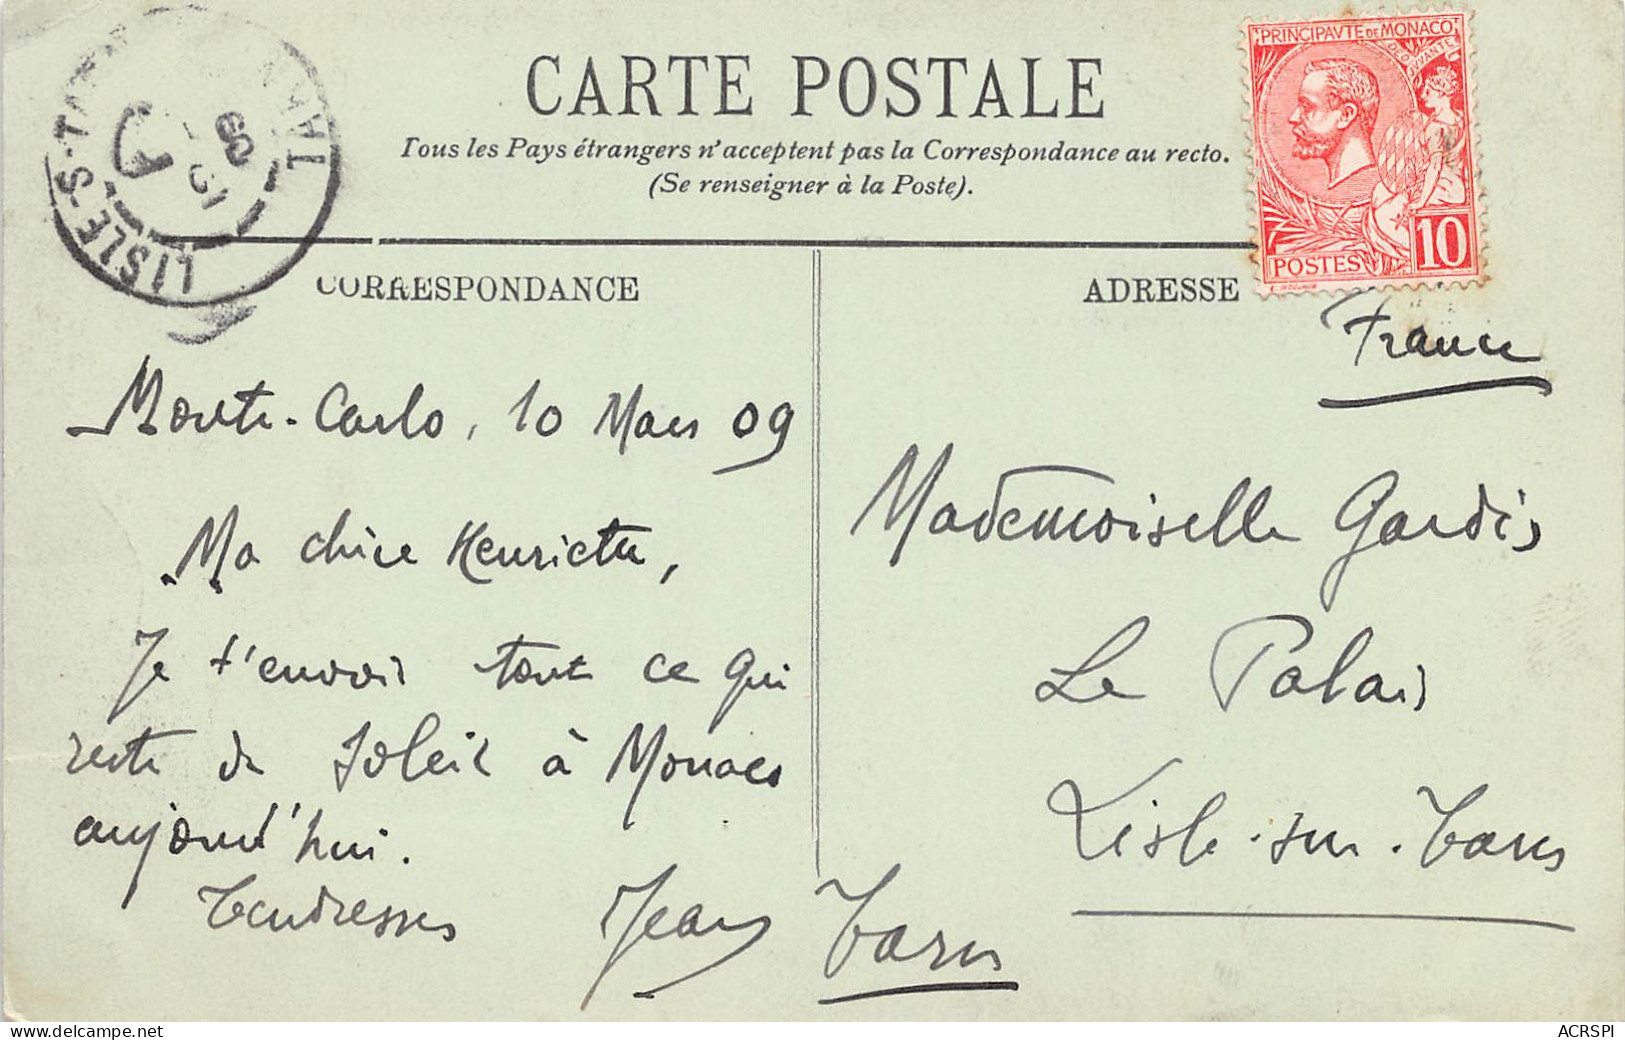 CARTE POSTALE
Tous les Pays étrangers n'acceptent pas la Correspondance au recto.
(Se renseigner à la Poste).
PRINCIPAVTE DE MONACO
DEO JUVANTE
POSTES 10
LISLE-S-TARN
TARN
09
CORRESPONDANCE
Monte-Carlo, 10 Mars 09
Ma chère Henriette,
Je t'envoie tout ce qui
reste de Soleil à Monaco
aujourd'hui.
Tendresses Jean
ADRESSE
France
Mademoiselle Gardès
Le Palais
Lisle-sur-Tarn
Tarn
www.delcampe.net
ACRSPI